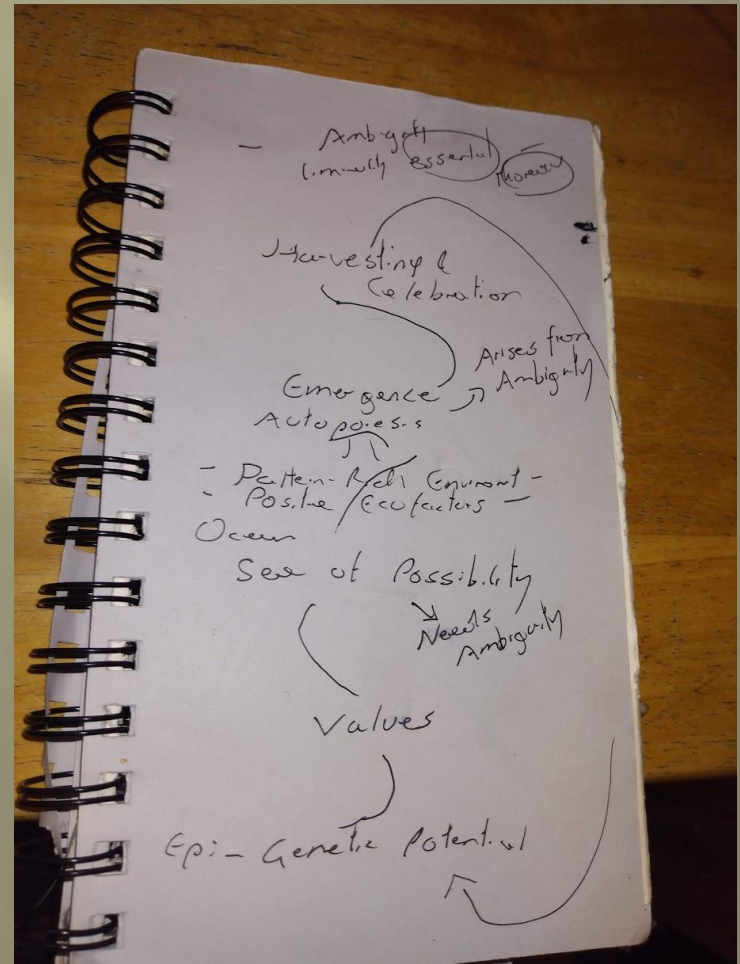 - Ambiguity
essential
Harvesting &
Celebration
Arises from
Ambiguity
Emergence
Autopoiesis
- Pattern-Rich Enviroment -
- Positive Ecofactors -
Ocean
Sea of Possibility
Needs
Ambiguity
Values
Epi-Genetic Potential